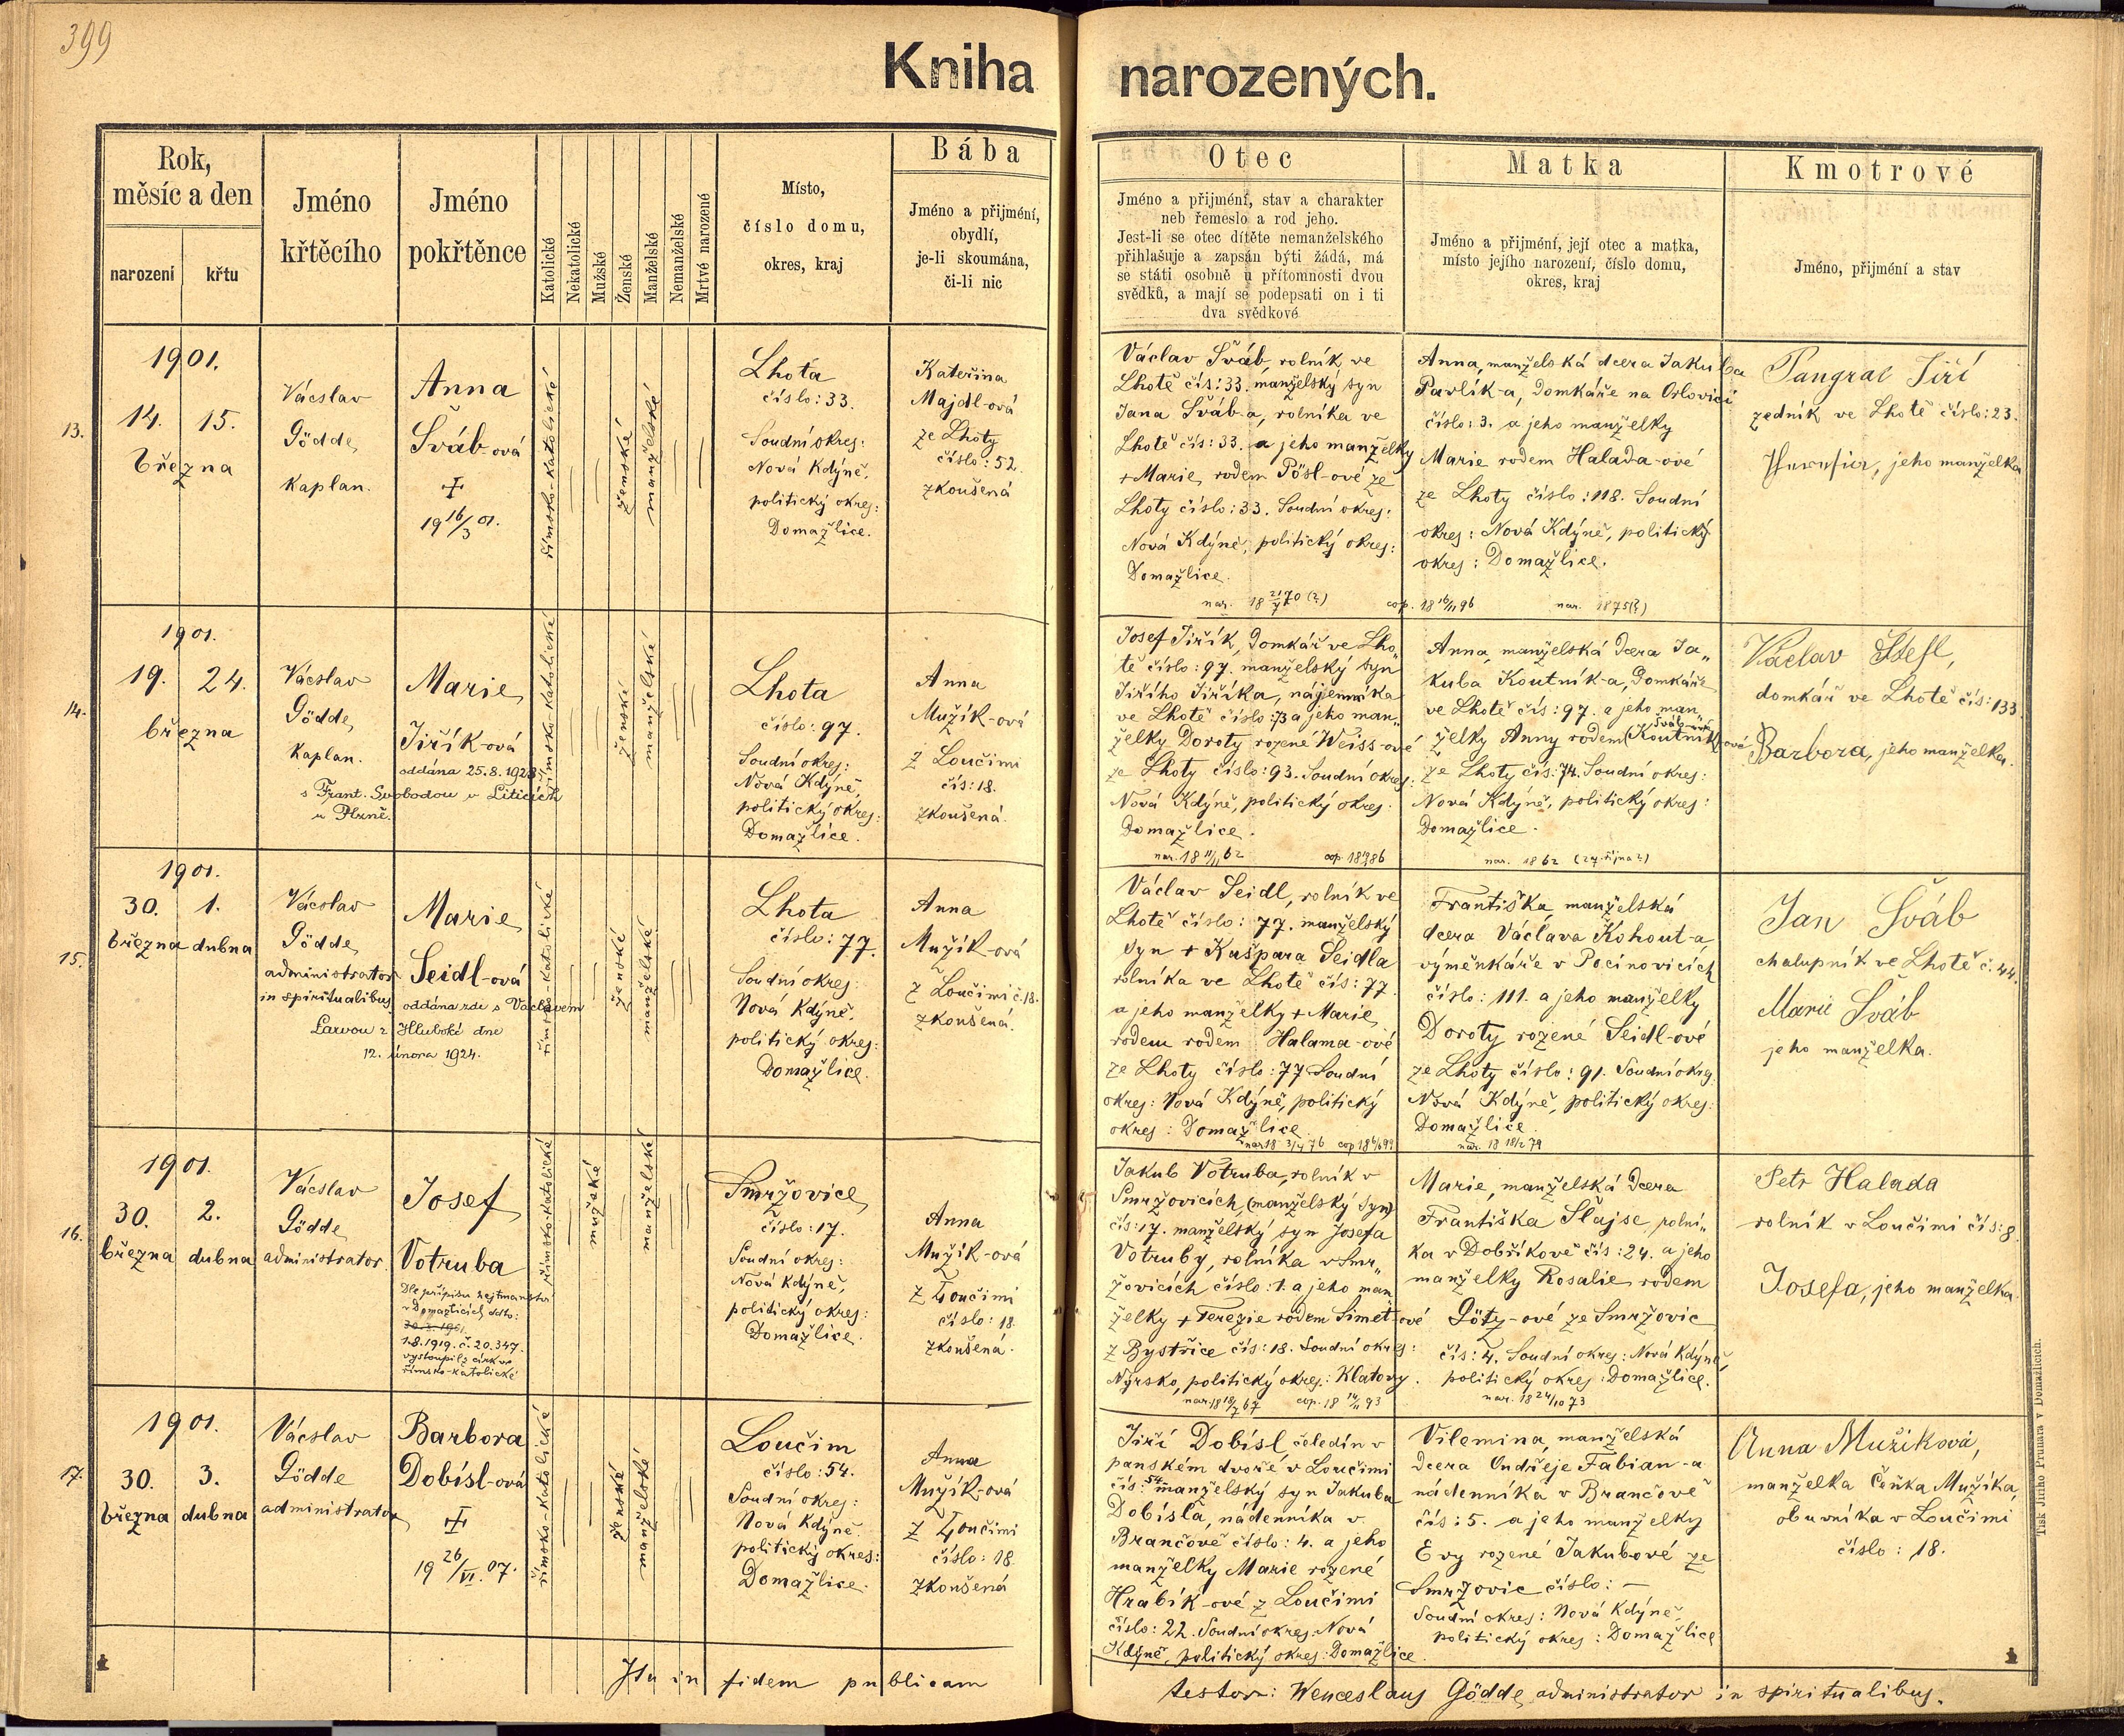 399
Kniha narozených.
Rok,
měsíc a den
narození
křtu
Jméno
křtěcího
Jméno
pokřtěnce
Katolické
Nekatolické
Mužské
Ženské
Manželské
Nemanželské
Mrtvé narozené
Místo,
číslo domu,
okres, kraj
Bába
Jméno a přijmení,
obydlí,
je-li skoumána,
či-li nic
Otec
Jméno a přijmení, stav a charakter
neb řemeslo a rod jeho.
Jest-li se otec dítěte nemanželského
přihlašuje a zapsán býti žádá, má
se státi osobně u přítomnosti dvou
svědků, a mají se podepsati on i ti
dva svědkové
Matka
Jméno a přijmení, její otec a matka,
místo jejího narození, číslo domu,
okres, kraj
Kmotrové
Jméno, přijmení a stav
13.
1901.
14. 15.
března
Vácslav
Gödde,
kaplan.
Anna
Šváb-ová
19 16/3 01.
římsko-katolické
ženské
manželské
Lhota
číslo: 33.
Soudní okres:
Nová Kdýně,
politický okres:
Domažlice.
Kateřina
Majdl-ová
ze Lhoty
číslo: 52.
zkoušená
Václav Šváb, rolník ve
Lhotě čís: 33. manželský syn
Jana Šváb-a, rolníka ve
Lhotě čís: 33. a jeho manželky
+ Marie, rodem Pösl-ové ze
Lhoty číslo: 33. Soudní okres:
Nová Kdýně, politický okres:
Domažlice.
cop. 18 16/11 96
Anna, manželská dcera Jakuba
Pavlík-a, domkáře na Orlovici
číslo: 3. a jeho manželky
Marie rodem Halada-ové
ze Lhoty číslo: 118. Soudní
okres: Nová Kdýně, politický
okres: Domažlice.
nar. 1875(?)
Pangrac Jiří
zedník ve Lhotě číslo: 23.
jeho manželka
14.
1901.
19. 24.
března
Vácslav
Gödde,
kaplan.
Marie
Jiřík-ová
oddána 25.8.1928
s Frant. Svobodou v Liticích
u Plzně.
římsko-katolické
ženské
manželské
Lhota
číslo: 97.
Soudní okres:
Nová Kdýně,
politický okres:
Domažlice.
Anna
Mužík-ová
z Loučimi
čís: 18.
zkoušená.
Josef Jiřík, domkář ve Lho„
tě číslo: 97. manželský syn
Jiřího Jiříka, nájemníka
ve Lhotě číslo: 73 a jeho man„
želky Doroty rozené Weiss-ové
ze Lhoty číslo: 93. Soudní okres:
Nová Kdýně, politický okres:
Domažlice.
nar. 18 11/11 62
Anna, manželská dcera Ja„
kuba Koutník-a, domkáře
ve Lhotě čís: 97. a jeho man„
Šváb-ové
želky Anny rodem (Koutník)ové
ze Lhoty čís: 74. Soudní okres:
Nová Kdýně, politický okres:
Domažlice.
nar. 1862 (24. října?)
Václav Štefl,
domkář ve Lhotě čís: 133.
Barbora, jeho manželka.
15.
1901.
30. 1.
března dubna
Vácslav
Gödde,
administrator
in spiritualibus
Marie
Seidl-ová
oddána zde s Václavem
Larvou z Hluboké dne
12. února 1924.
římsko-katolické
ženské
manželské
Lhota
číslo: 77.
Soudní okres:
Nová Kdýně,
politický okres:
Domažlice.
Anna
Mužík-ová
z Loučimi č. 18.
zkoušená.
Václav Seidl, rolník ve
Lhotě číslo: 77. manželský
syn + Kašpara Seidla
rolníka ve Lhotě čís: 77.
a jeho manželky + Marie,
rodem rodem Halama-ové
ze Lhoty číslo: 77 Soudní
okres: Nová Kdýně, politický
okres: Domažlice.
nar. 18 3/4 76
Františka manželská
dcera Václava Kohout-a
výměnkáře v Pocinovicích
číslo: 111. a jeho manželky
Doroty rozené Seidl-ové
ze Lhoty číslo: 91. Soudní okres:
Nová Kdýně, politický okres:
Domažlice.
nar. 18 18/2 79
Jan Šváb
chalupník ve Lhotě č. 44.
Marie Šváb
jeho manželka.
16.
1901.
30. 2.
března dubna
Vácslav
Gödde,
administrator
Josef
Votruba
Dle přípisu hejtmanství
v Domažlicích ddto:
1.8.1919. č. 20.347.
vystoupil z církve
římsko-katolické
římsko-katolické
mužské
manželské
Smržovice
číslo: 17.
Soudní okres:
Nová Kdýně,
politický okres:
Domažlice.
Anna
Mužík-ová
z Loučimi
číslo: 18.
zkoušená.
Jakub Votruba, rolník v
Smržovicích, (manželský syn)
čís: 17. manželský syn Josefa
Votruby, rolníka v Smr„
žovicích číslo: 1. a jeho man„
želky + Terezie rodem Simet-ové
z Bystřice čís: 18. Soudní okres:
Nýrsko, politický okres: Klatovy.
cop. 18 14/11 93
Marie, manželská dcera
Františka Slajse, rolní„
ka v Dobříkově čís: 24. a jeho
manželky Rosalie rodem
Götz-ové ze Smržovic
čís: 4. Soudní okres: Nová Kdýně,
politický okres: Domažlice.
nar. 18 24/10 73
Petr Halada
rolník v Loučimi čís: 8.
Josefa, jeho manželka.
17.
1901.
30. 3.
března dubna
Vácslav
Gödde
administrator
Barbora
Dobísl-ová
19 26/VI. 07.
římsko-katolické
ženské
manželské
Loučim
číslo: 54.
Soudní okres:
Nová Kdýně.
politický okres:
Domažlice.
Anna
Mužík-ová
z Loučimi
číslo: 18.
zkoušená
Jiří Dobísl, čeledín v
panském dvoře v Loučimi
čís: 54. manželský syn Jakuba
Dobísla, nádenníka v
Brančově číslo: 4. a jeho
manželky Marie rozené
Hrabík-ové z Loučimi
číslo: 22. Soudní okres: Nová
Kdýně, politický okres: Domažlice.
Vilemina, manželská
dcera Ondřeje Fabian-a
nádenníka v Brančově
čís: 5. a jeho manželky
Evy rozené Jakubové ze
Smržovic číslo: —
Soudní okres: Nová Kdýně,
politický okres: Domažlice
Anna Mužiková,
manželka Čeňka Mužíka,
obuvníka v Loučimi
číslo: 18.
Ita in fidem publicam
testor: Wenceslaus Gödde, administrator in spiritualibus.
Tisk Jiřího Prunara v Domažlicích.